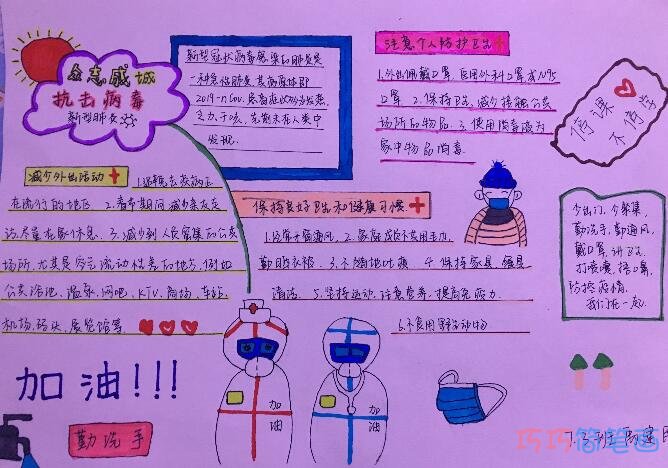 众志成城
抗击病毒
新型肺炎
新型冠状病毒感染的肺炎是
一种急性肺炎,其病原体即
2019-nCov.患者症状为发热.
乏力、干咳,先期未在人类中
发现.
注意个人防护卫生
1.外出佩戴口罩,医用外科口罩或N95
口罩. 2.保持卫生,减少接触公共
场所的物品. 3.使用消毒液为
家中物品消毒.
停课
不停学
减少外出活动
1.避免去疾病正
在流行的地区. 2.春节期间减少亲友走
访,尽量在家休息. 3.减少到人员密集的公共
场所,尤其是空气流动性差的地方,例如
公共浴池、温泉、网吧、KTV、商场、车站
机场、码头、展览馆等.
保持良好卫生和健康习惯.
1.经常开窗通风. 2.家庭成员不共用毛巾
勤晒衣被. 3.不随地吐痰 4.保持家具、餐具
清洁. 5.坚持运动,注意营养,提高免疫力.
6.不食用野生动物
少出门,少聚集,
勤洗手,勤通风,
戴口罩,讲卫生,
打喷嚏,捂口鼻,
防控疫情,
我们在一起.
加油!!!
勤洗手
加油
加油
巧巧简笔画